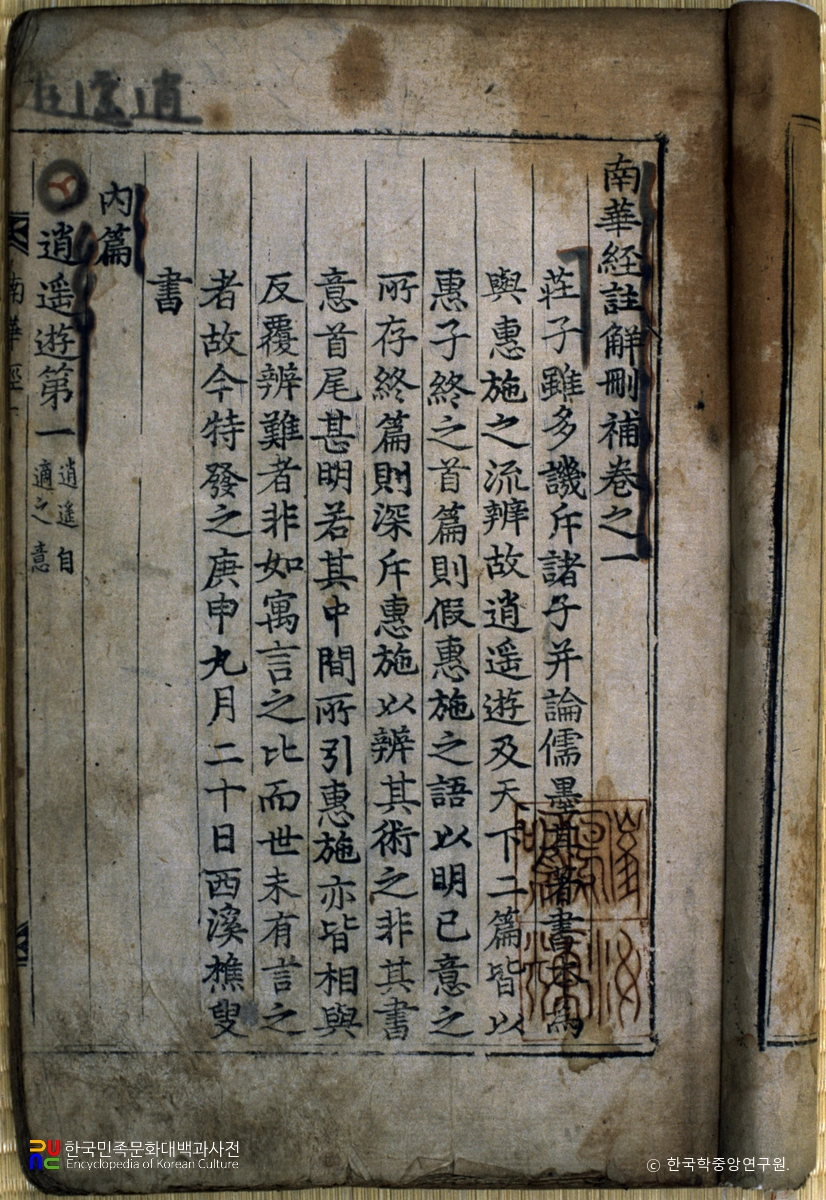 南華経註解刪補卷之一
莊子雖多譏斥諸子并論儒墨其著書本為
與惠施之流辨故逍遥遊及天下二篇皆以
惠子終之首篇則假惠施之語以明已意之
所存終篇則深斥惠施以辨其術之非其書
意首尾甚明若其中間所引惠施亦皆相與
反覆辨難者非如寓言之比而世未有言之
者故今特發之庚申九月二十日西溪樵叟
書
內篇
逍遥遊第一 逍遥自
適之意
南華經一
한국민족문화대백과사전
Encyclopedia of Korean Culture
© 한국학중앙연구원.